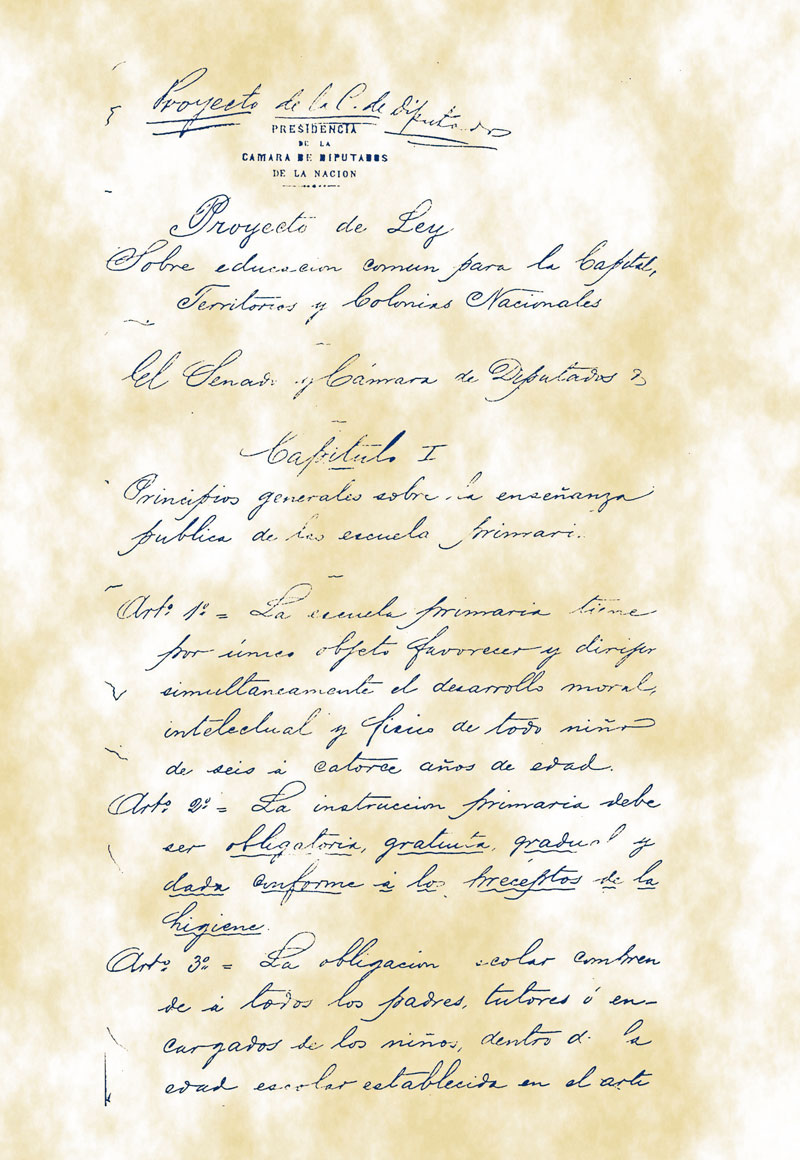 Proyecto de la C. de Diputados
PRESIDENCIA
DE LA
CAMARA DE DIPUTADOS
DE LA NACION
Proyecto de Ley
Sobre educacion comun para la Capital,
Territorios y Colonias Nacionales
El Senado y Cámara de Diputados &
Capitulo I
Principios generales sobre la enseñanza
publica de las escuela primari.
Arto. 1o. = La escuela primaria tiene
por único objeto favorecer y dirijir
simultaneamente el desarrollo moral,
intelectual y fisico de todo niño
de seis á catorce años de edad.
Arto. 2o. = La instruccion primaria debe
ser obligatoria, gratuita, gradual y
dada conforme á los preceptos de la
higiene.
Arto. 3o. = La obligacion scolar compren
de á todos los padres, tutores ó en-
cargados de los niños, dentro d. la
edad escolar establecida en el arti